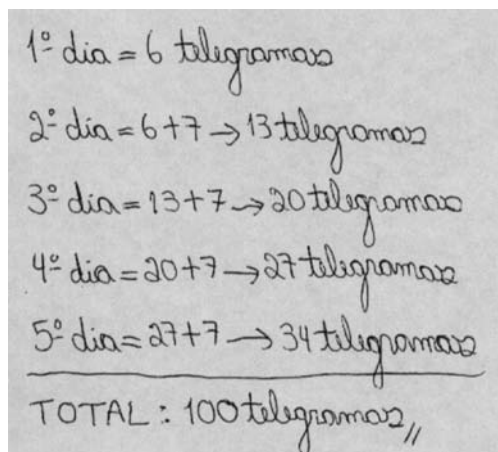 1º dia = 6 telegramas
2º dia = 6+7 → 13 telegramas
3º dia = 13+7 → 20 telegramas
4º dia = 20+7 → 27 telegramas
5º dia = 27+7 → 34 telegramas
TOTAL : 100 telegramas //